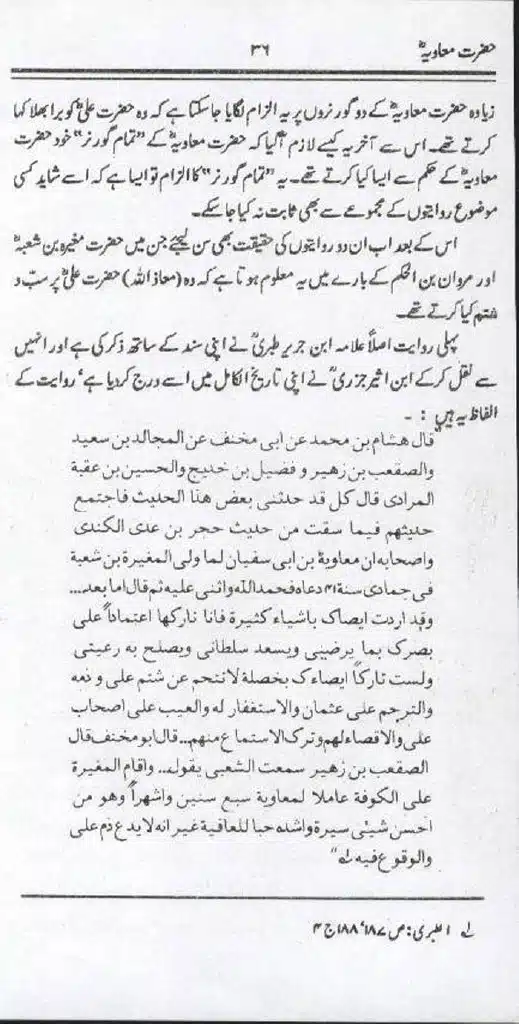 حضرت معاویہؓ
۳۶
زیادہ حضرت معاویہؓ کے دو گورنروں پر یہ الزام لگایا جا سکتا ہے کہ وہ حضرت علیؓ کو برا بھلا کہا
کرتے تھے۔ اس سے آخر یہ کیسے لازم آگیا کہ حضرت معاویہؓ کے "تمام گورنر" خود حضرت
معاویہؓ کے حکم سے ایسا کیا کرتے تھے۔ یہ "تمام گورنر" کا الزام تو ایسا ہے کہ اسے شاید کسی
موضوع روایتوں کے مجموعے سے بھی ثابت نہ کیا جا سکے۔
اس کے بعد اب ان دو روایتوں کی حقیقت بھی سن لیجئے جن میں حضرت مغیرہ بن شعبہؓ
اور مروان بن الحکم کے بارے میں یہ معلوم ہوتا ہے کہ وہ (معاذ اللہ) حضرت علیؓ پر سبّ و
شتم کیا کرتے تھے۔
پہلی روایت اصلاً علامہ ابن جریر طبریؒ نے اپنی سند کے ساتھ ذکر کی ہے اور انہیں
سے نقل کر کے ابن اثیر جزریؒ نے اپنی تاریخ الکامل میں اسے درج کر دیا ہے، روایت کے
الفاظ یہ ہیں : ۔
"قال هشام بن محمد عن ابی مخنف عن المجالد بن سعید
والصقعب بن زهیر و فضیل بن خدیج والحسین بن عقبة
المرادی قال کل قد حدثنی بعض هذا الحدیث فاجتمع
حدیثهم فیما سقت من حدیث حجر بن عدی الکندی
واصحابه ان معاویة بن ابی سفیان لما ولی المغیرة بن شعبة
فی جمادی سنة ۴۱ دعاه فحمد الله واثنی علیه ثم قال اما بعد...
وقد اردت ایصاک باشیاء کثیرة فانا تارکها اعتماداً علی
بصرک بما یرضینی ویسعد سلطانی ویصلح به رعیتی
ولست تارکاً ایصاءک بخصلة لا تتحم عن شتم علی و ذمه
والترحم علی عثمان والاستغفار له والعیب علی اصحاب
علی والاقصاء لهم وترک الاستماع منهم... قال ابو مخنف قال
الصقعب بن زهیر سمعت الشعبی یقول... واقام المغیرة
علی الکوفة عاملا لمعاویة سبع سنین واشهراً وهو من
احسن شیئی سیرة واشده حبا للعافیة غیر انه لا یدع ذم علی
والوقوع فیه لہ"
لہ الطبری: ص ۱۸۷، ۱۸۸ ج ۴